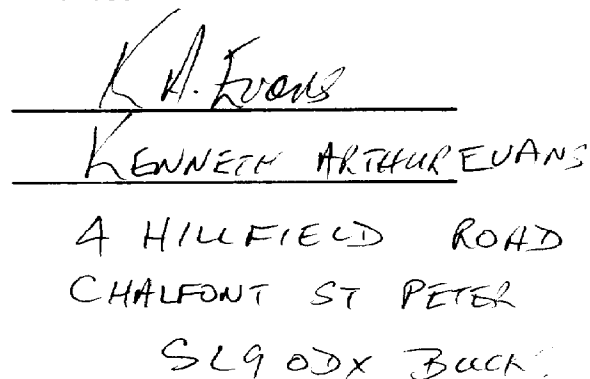 K A. Evans
KENNETH ARTHUR EVANS
4 HILLFIELD ROAD
CHALFONT ST PETER
SL9 0DX BUCKS